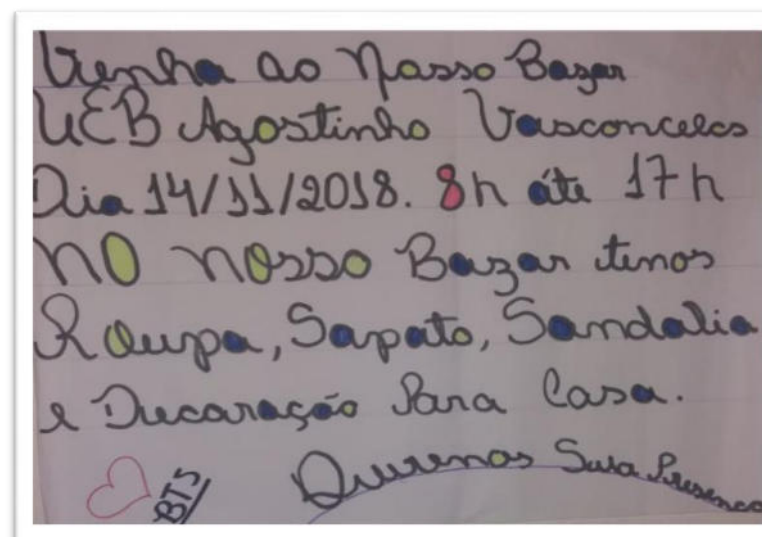 Venha ao Nosso Bazar
UEB Agostinho Vasconcelos
Dia 14/11/2018. 8h áte 17h
NO Nosso Bazar temos
Roupa, Sapato, Sandalia
e Ducaração Para Casa.
Queremos Sua Presença
BTS